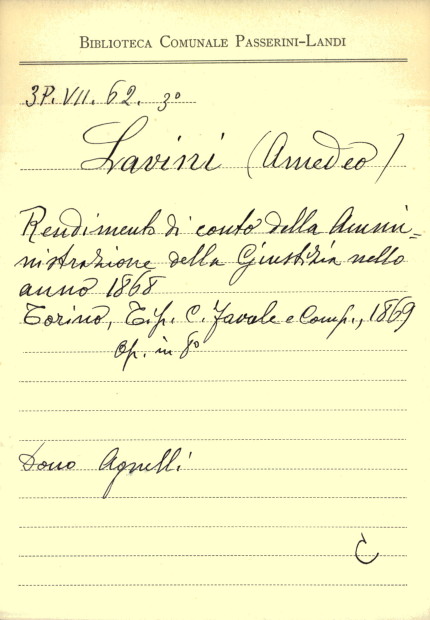 BIBLIOTECA COMUNALE PASSERINI-LANDI
3P. VII. 62. 3°
Lavini (Amedeo)
Rendimento di conto della Ammi=
nistrazione della Giustizia nello
anno 1868
Torino, Tip. C. Favale e Comp., 1869
Op. in 8°
Dono Agnelli
C